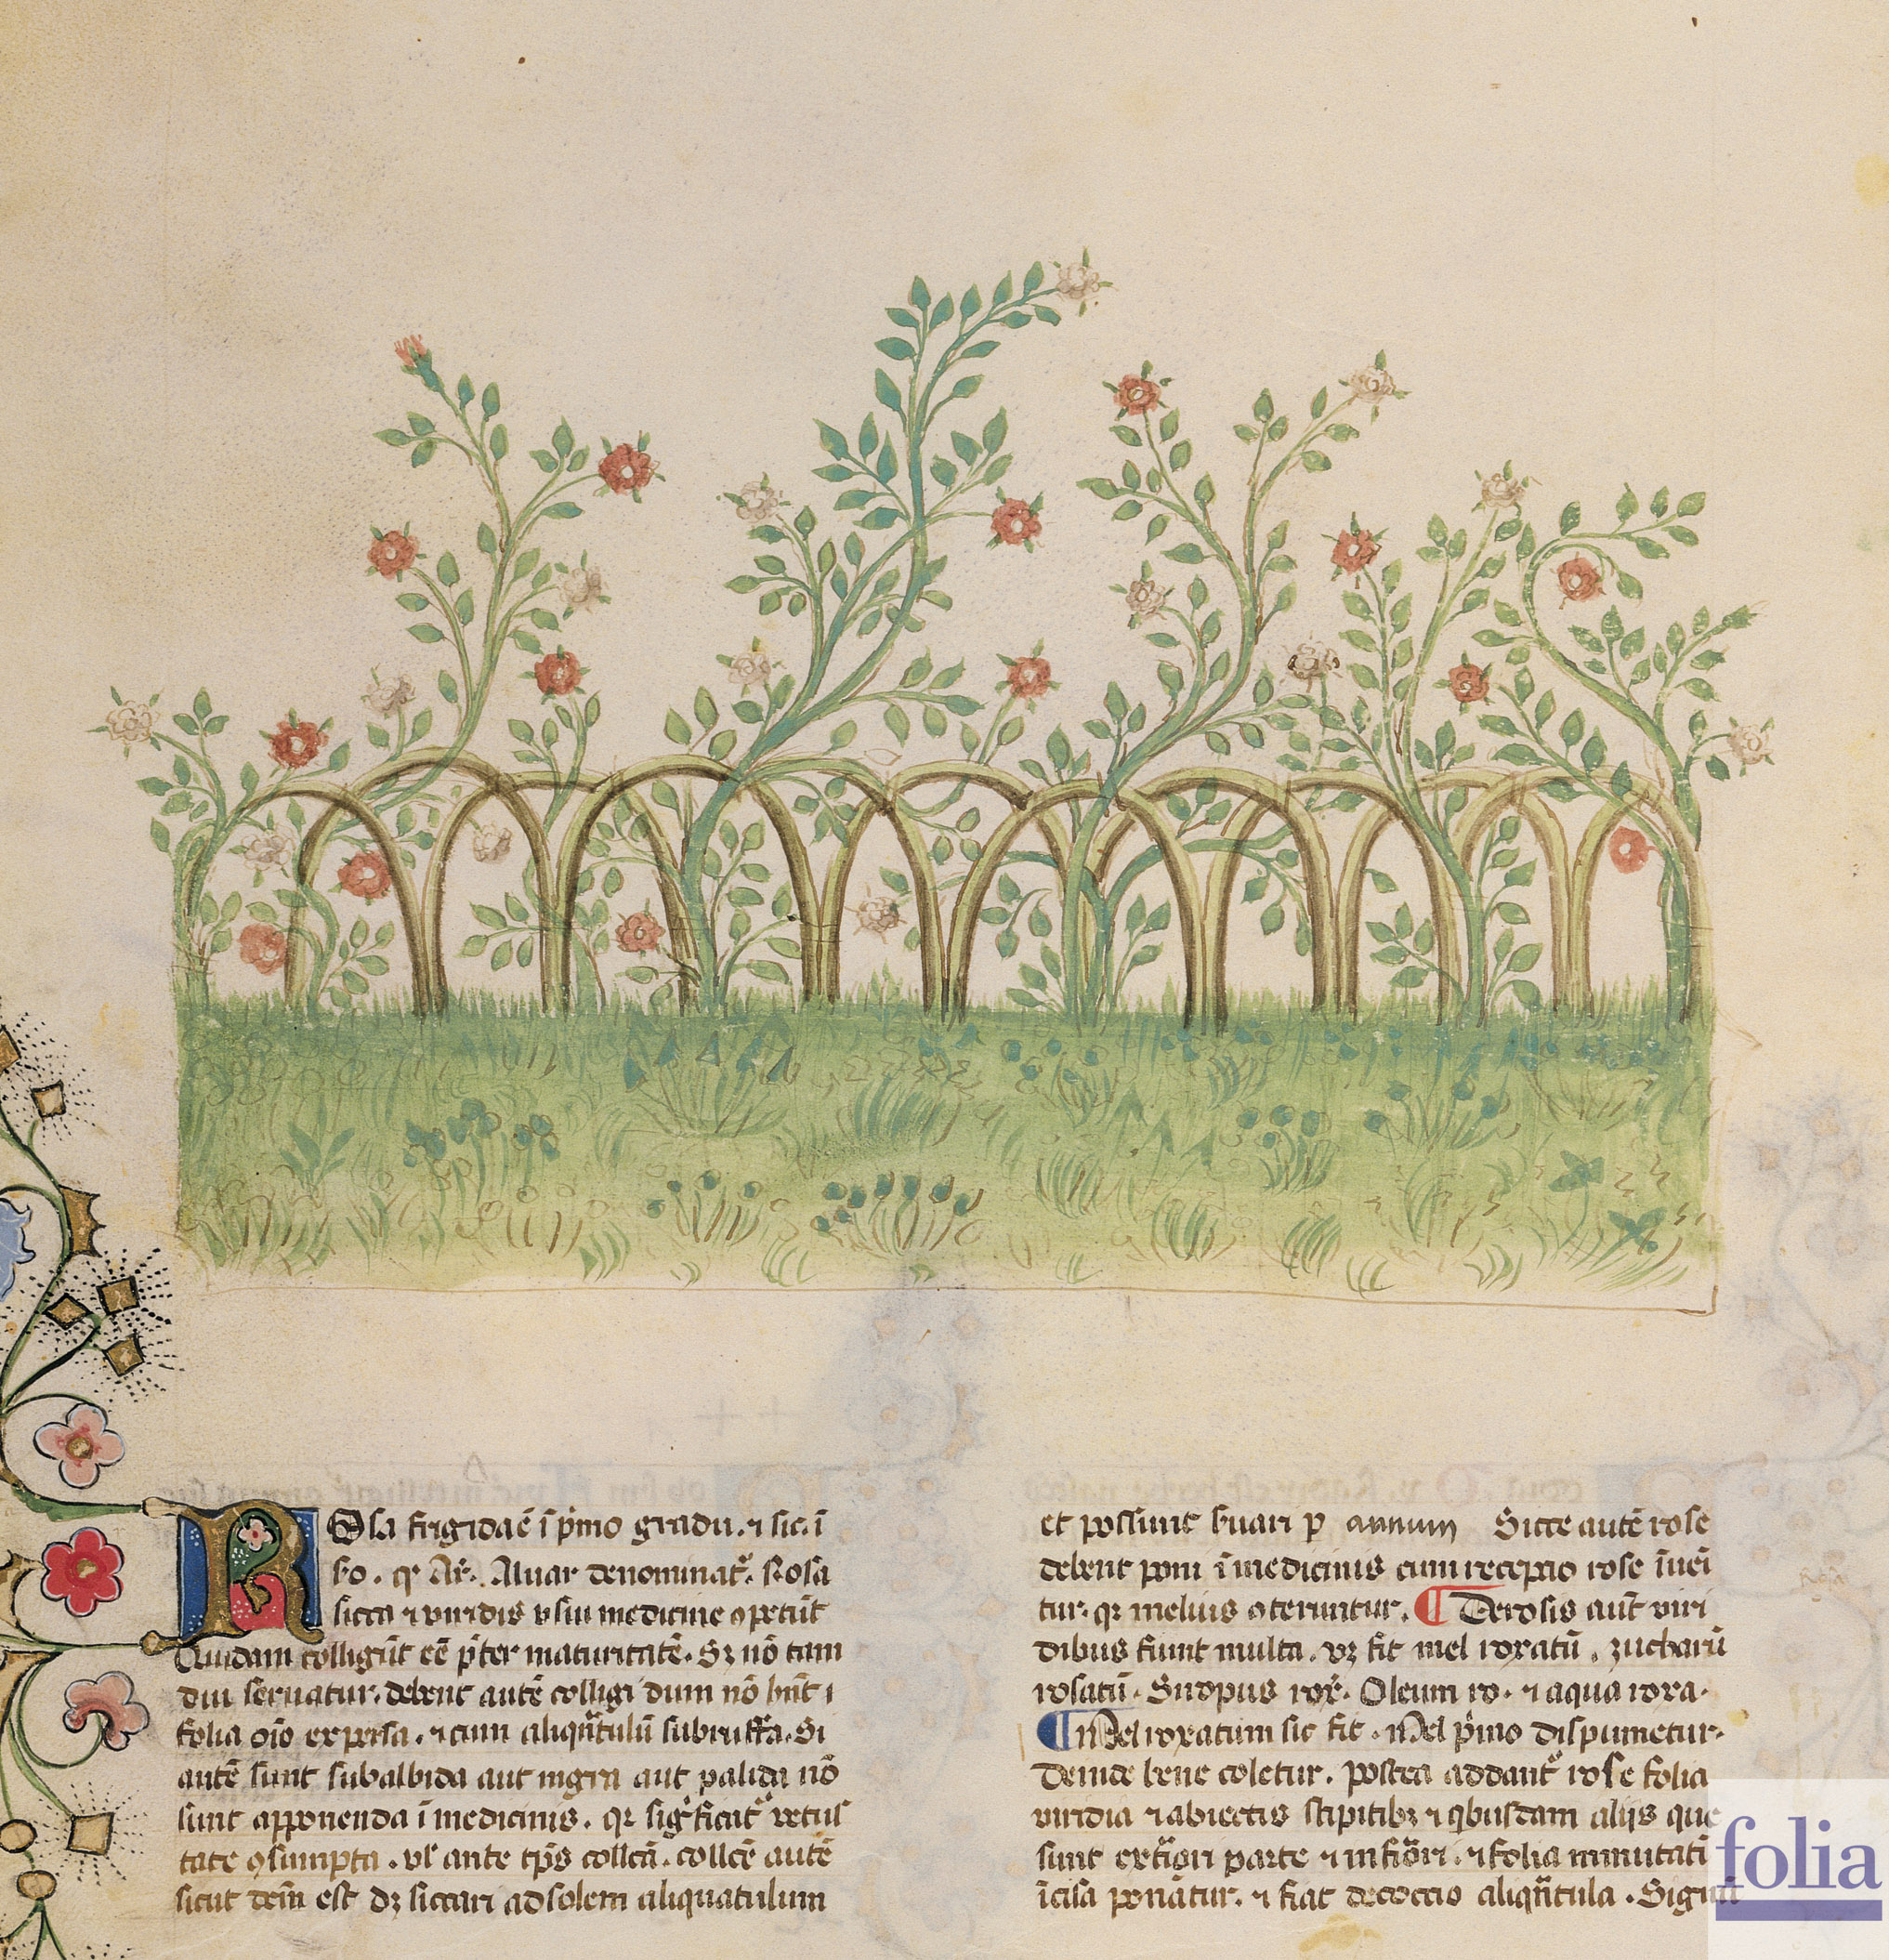 Rosa frigida ē ī p̄mo gradu. ⁊ sic. ī
sicca ⁊ viridis vsui medicine ꝯpetūt
Quidam colligūt eē p̄ter maturitatē. Sꝫ nō tam
diu seruatur. debent autē colligi dum nō hn̄t
folia oīo expāsa. ⁊ cum aliqn̄tulū subruffa. Si
autē sunt subalbida aut nigra aut palida nō
sunt apponenda ī medicinis. qꝛ sig̾ficat̾ vetus
tate ꝯsumpta. vl̾ ante tp̄s collcā. collcē autē
sicut dcm̄ est dꝫ siccari ad solem aliquatulum
et possunt ẜuari p annum Sicce autē rose
debent poni ī medicinis cum recepcio rose īuēi
tur. qꝛ melius ꝯteruntur. ¶ De rosis aūt viri
dibus fiunt multa. vꝫ fit mel roxatū. zucharū
rosatū. Siropus rox̄. Oleum ro. ⁊ aqua roxa.
¶ Mel roxatum sic fit. Mel p̄mo dispumetur.
Deinde bene coletur. postea addant̾ rose folia
viridia ⁊ abiectis stipitibꝫ ⁊ qͥbusdam alijs que
sunt ext̾iori parte ⁊ infiōri. ⁊ folia minutati
īcisa ponātur. ⁊ fiat decoccio aliqn̄tula.
folia